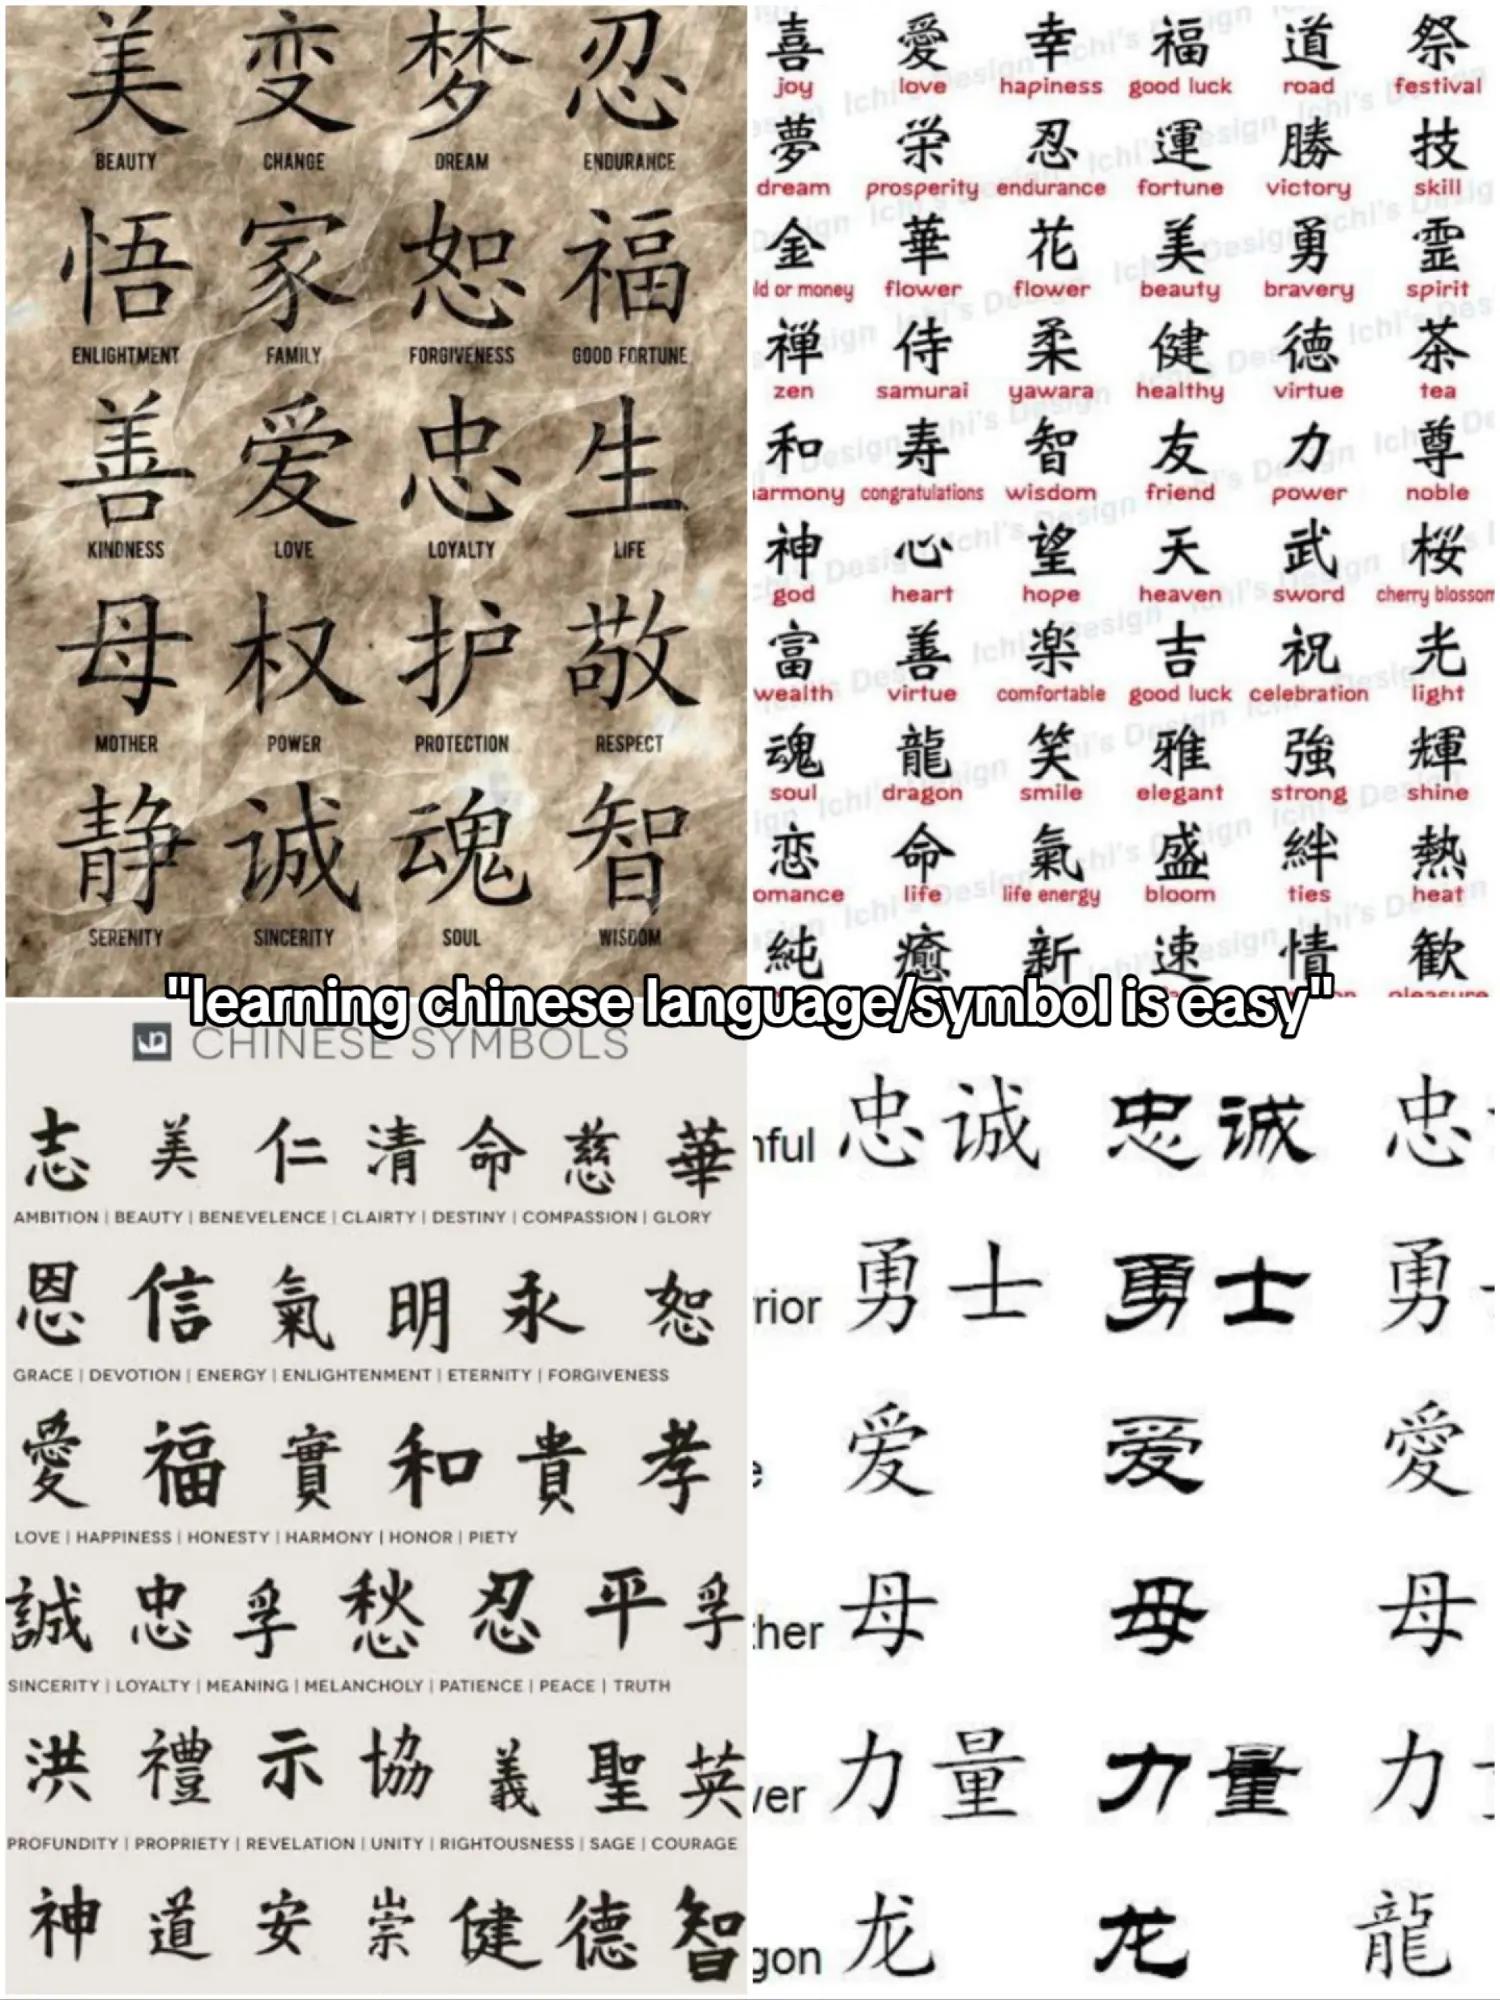 美 变 梦 忍
BEAUTY CHANGE DREAM ENDURANCE
悟 家 恕 福
ENLIGHTMENT FAMILY FORGIVENESS GOOD FORTUNE
善 爱 忠 生
KINDNESS LOVE LOYALTY LIFE
母 权 护 敬
MOTHER POWER PROTECTION RESPECT
静 诚 魂 智
SERENITY SINCERITY SOUL WISDOM
喜 愛 幸 福 道 祭
joy love hapiness good luck road festival
夢 栄 忍 運 勝 技
dream prosperity endurance fortune victory skill
金 華 花 美 勇 霊
ld or money flower flower beauty bravery spirit
禅 侍 柔 健 徳 茶
zen samurai yawara healthy virtue tea
和 寿 智 友 力 尊
armony congratulations wisdom friend power noble
神 心 望 天 武 桜
god heart hope heaven sword cherry blossom
富 善 楽 吉 祝 光
wealth virtue comfortable good luck celebration light
魂 龍 笑 雅 強 輝
soul dragon smile elegant strong shine
恋 命 氣 盛 絆 熱
omance life life energy bloom ties heat
純 癒 新 速 情 歓
pleasure
"learning chinese language/symbol is easy"
CHINESE SYMBOLS
志 美 仁 清 命 慈 華
AMBITION | BEAUTY | BENEVELENCE | CLAIRTY | DESTINY | COMPASSION | GLORY
恩 信 氣 明 永 恕
GRACE | DEVOTION | ENERGY | ENLIGHTENMENT | ETERNITY | FORGIVENESS
愛 福 實 和 貴 孝
LOVE | HAPPINESS | HONESTY | HARMONY | HONOR | PIETY
誠 忠 孚 愁 忍 平 孚
SINCERITY | LOYALTY | MEANING | MELANCHOLY | PATIENCE | PEACE | TRUTH
洪 禮 示 協 義 聖 英
PROFUNDITY | PROPRIETY | REVELATION | UNITY | RIGHTOUSNESS | SAGE | COURAGE
神 道 安 崇 健 德 智
nful 忠诚 忠诚 忠
rior 勇士 勇士 勇
e 爱 爱 愛
ther 母 母 母
wer 力量 力量 力
gon 龙 龙 龍